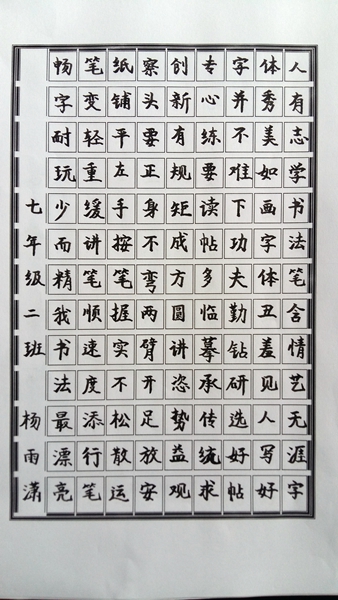 人有志学书法笔含情艺无涯字
体秀美如画字体丑羞见人写好
字并不难下功夫勤钻研选好帖
专心练要读帖多临摹承传统求
创新有规矩成方圆讲恣势益观
察头要正身不弯两臂开足放安
纸铺平左手按笔握实不松散运
笔变轻重缓讲笔顺速度添行笔
畅字耐玩少而精我书法最漂亮
七年级二班 杨雨潇